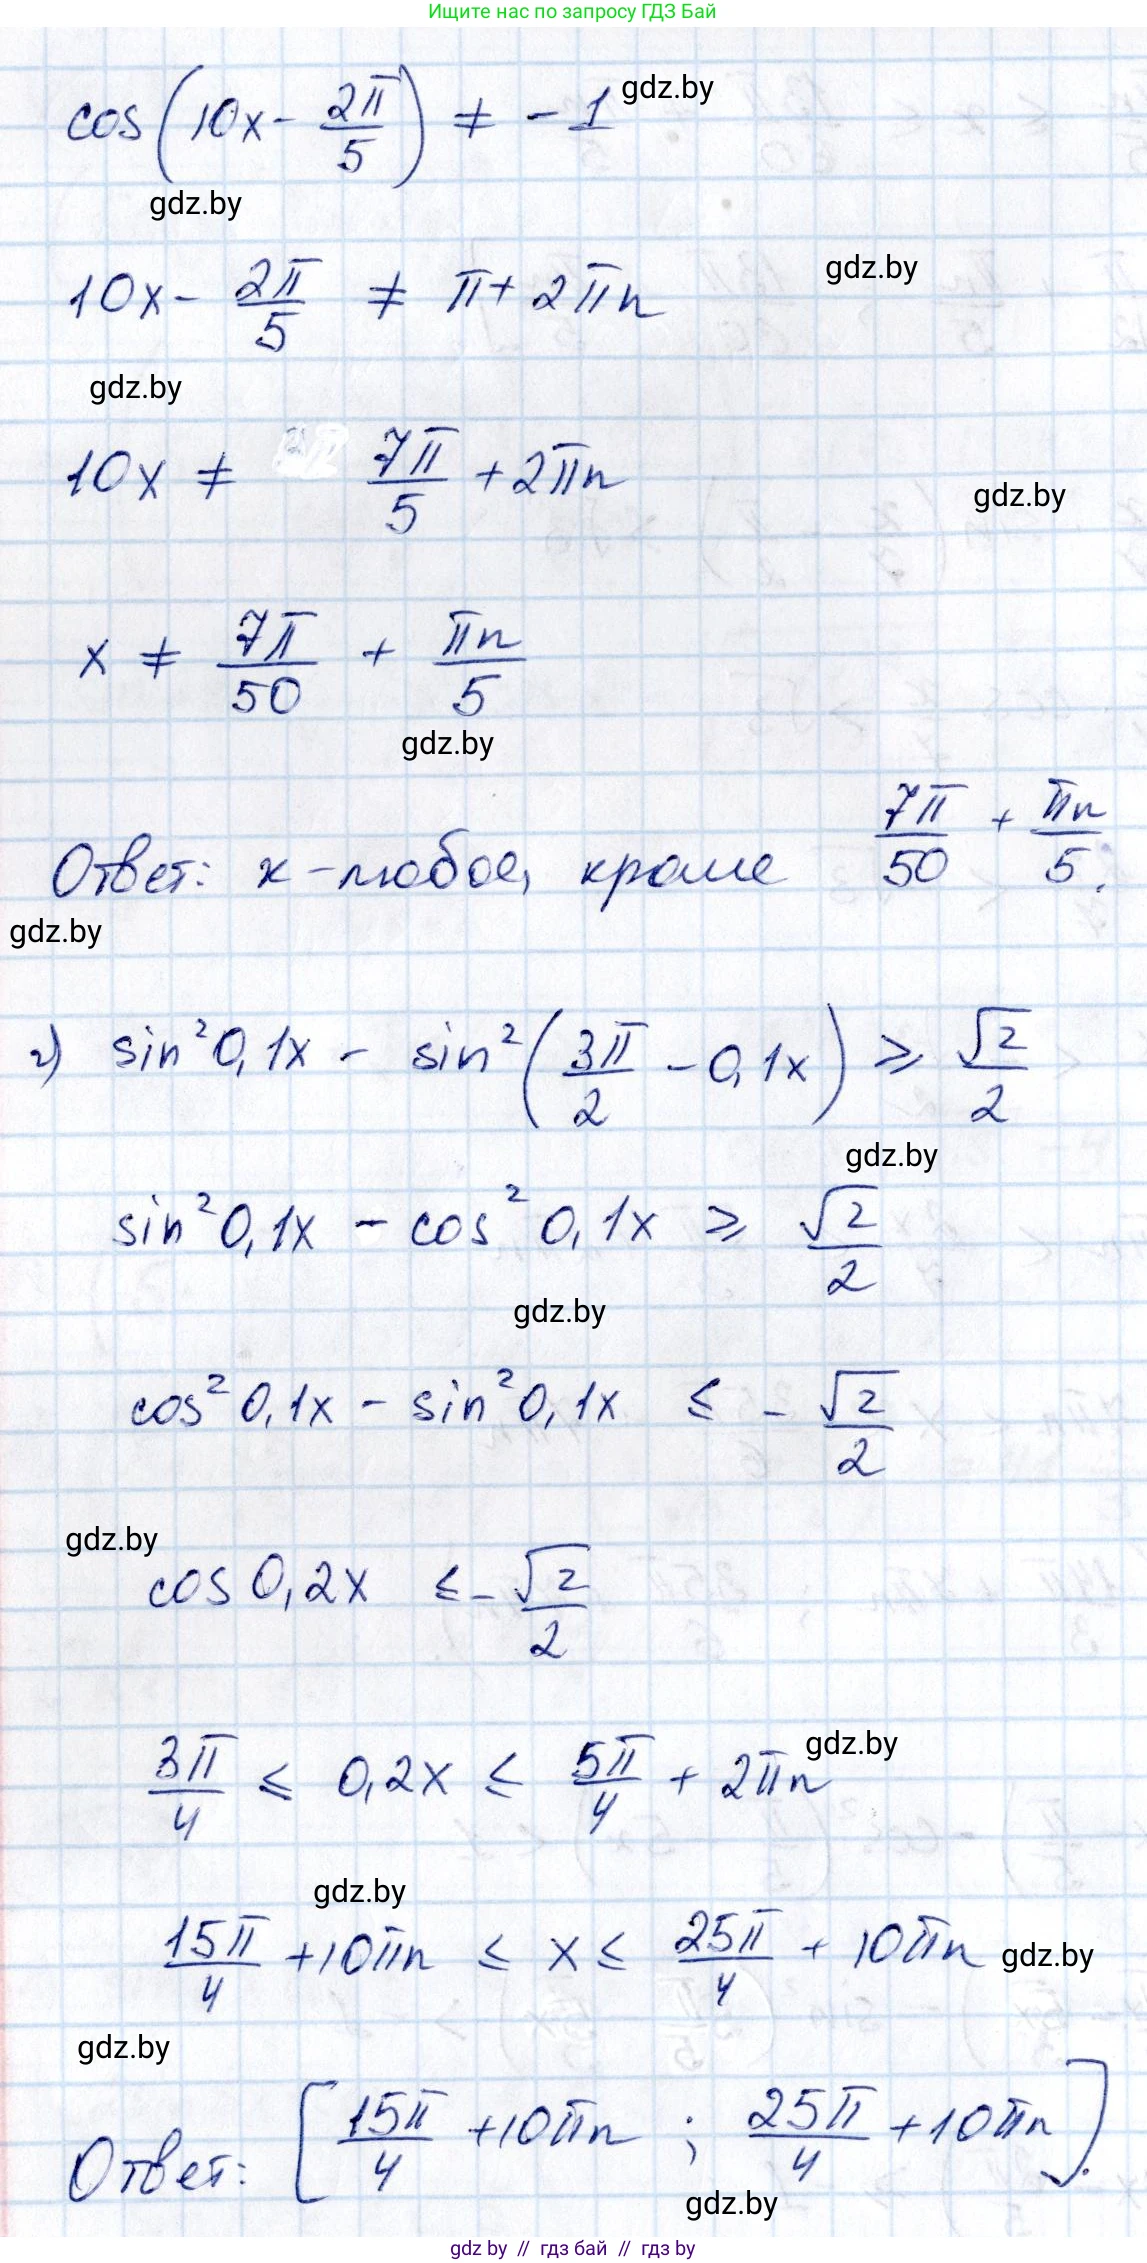 Ищите нас по запросу ГДЗ Бай
cos(10x - 2π/5) ≠ -1
gdz.by
gdz.by
10x - 2π/5 ≠ π + 2πn
gdz.by
gdz.by
10x ≠ 7π/5 + 2πn
gdz.by
x ≠ 7π/50 + πn/5
gdz.by
Ответ: x - любое, кроме 7π/50 + πn/5.
gdz.by
г) sin²0,1x - sin²(3π/2 - 0,1x) ≥ √2/2
gdz.by
sin²0,1x - cos²0,1x ≥ √2/2
gdz.by
cos²0,1x - sin²0,1x ≤ -√2/2
gdz.by
cos0,2x ≤ -√2/2
gdz.by
3π/4 ≤ 0,2x ≤ 5π/4 + 2πn
gdz.by
15π/4 + 10πn ≤ x ≤ 25π/4 + 10πn
gdz.by
gdz.by
Ответ: [15π/4 + 10πn ; 25π/4 + 10πn].
gdz.by
gdz by // гдз бай // gdz by